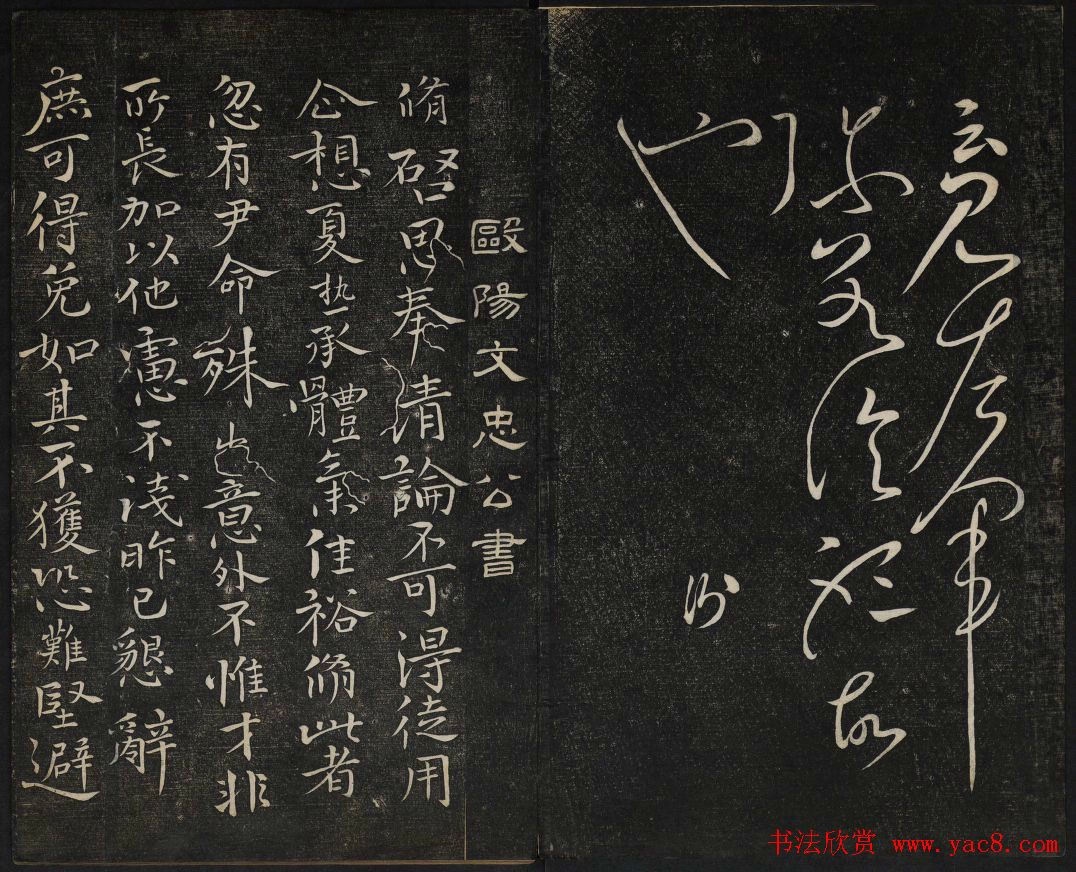 右軍
也
歐陽文忠公書
脩啓思奉清論不可得徒用
企想夏热承體氣佳裕脩此者
忽有尹命殊出意外不惟才非
所長加以他慮不淺昨已懇辭
庶可得免如其不獲恐難堅避
书法欣赏 www.yac8.com